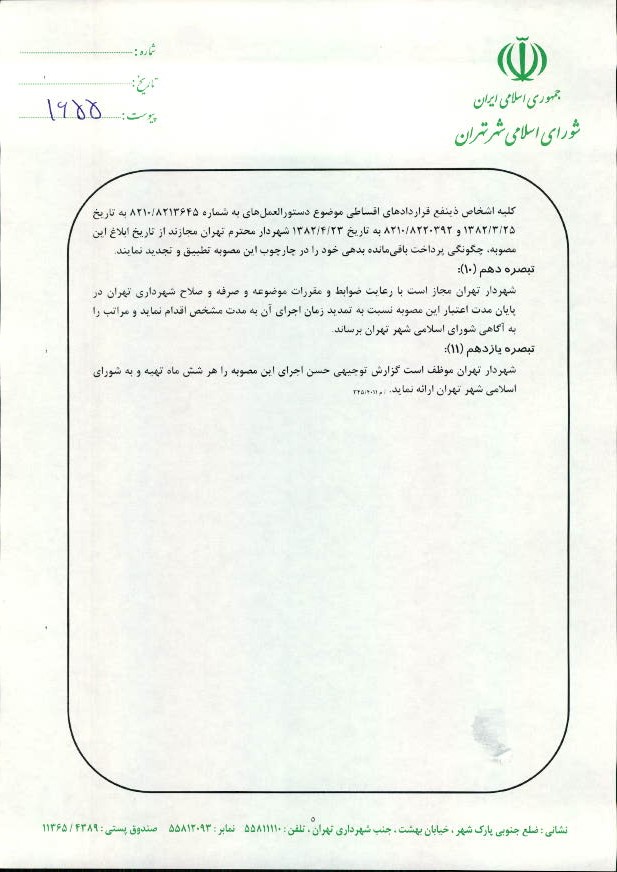 جمهوری اسلامی ایران
شورای اسلامی شهر تهران
شماره :
تاریخ :
پیوست : ۱۶۵۵
کلیه اشخاص ذینفع قراردادهای اقساطی موضوع دستورالعمل‌های به شماره ۸۲۱۰/۸۲۱۳۶۴۵ به تاریخ
۱۳۸۲/۳/۲۵ و ۸۲۱۰/۸۲۲۰۳۹۲ به تاریخ ۱۳۸۲/۴/۲۳ شهردار محترم تهران مجازند از تاریخ ابلاغ این
مصوبه، چگونگی پرداخت باقی‌مانده بدهی خود را در چارچوب این مصوبه تطبیق و تجدید نمایند.
تبصره دهم (۱۰):
شهردار تهران مجاز است با رعایت ضوابط و مقررات موضوعه و صرفه و صلاح شهرداری تهران در
پایان مدت اعتبار این مصوبه نسبت به تمدید زمان اجرای آن به مدت مشخص اقدام نماید و مراتب را
به آگاهی شورای اسلامی شهر تهران برساند.
تبصره یازدهم (۱۱):
شهردار تهران موظف است گزارش توجیهی حسن اجرای این مصوبه را هر شش ماه تهیه و به شورای
اسلامی شهر تهران ارائه نماید.
۵
نشانی : ضلع جنوبی پارک شهر ، خیابان بهشت ، جنب شهرداری تهران ، تلفن : ۵۵۸۱۱۱۱۰ نمابر : ۵۵۸۱۲۰۹۳ صندوق پستی : ۴۳۸۹ / ۱۱۳۶۵